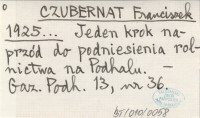 CZUBERNAT Franciszek
1925... Jeden krok na-
przód do podniesienia rol-
nictwa na Podhalu. -
Gaz. Podh. 13, nr 36.
BJ/010/0058